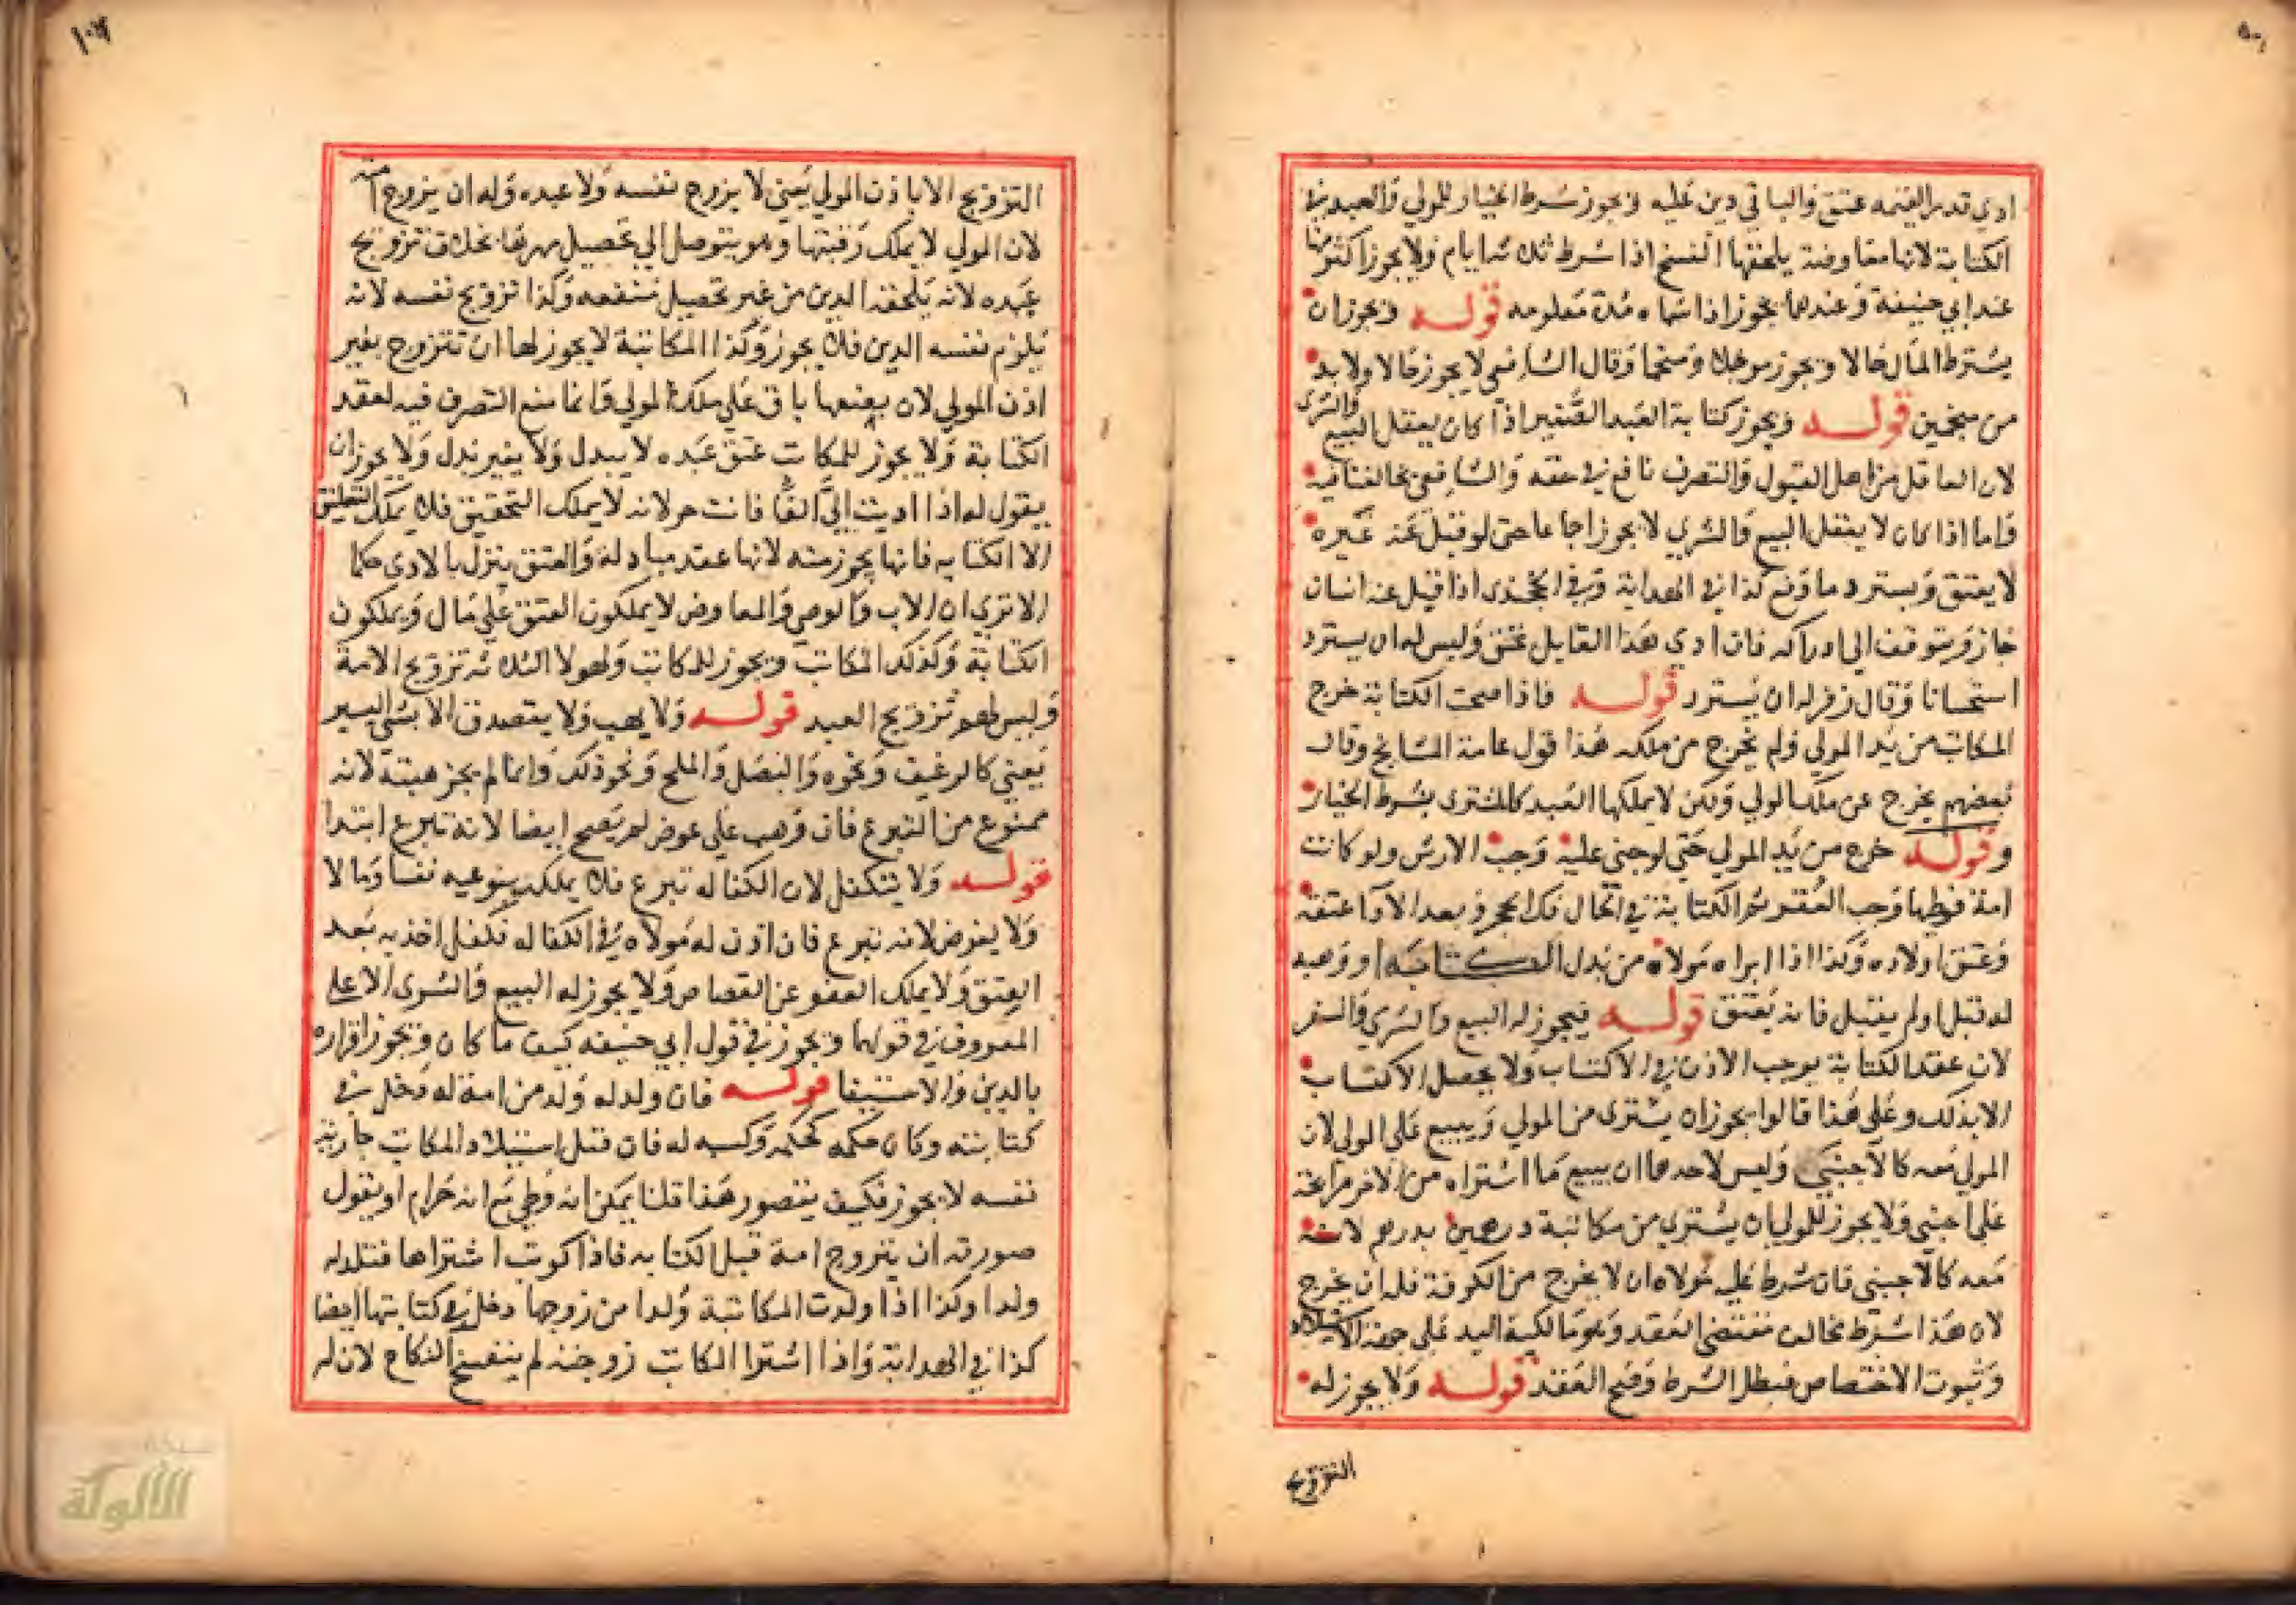 ادي قدر القيمه عتق والباقي دين عليه ويجوز شرط الخيار للمولي والعبد في
الكتابة لانها معاوضة يلحقها الفسخ اذا شرط ثلاثه ايام ولا يجوز اكثر منها
عند ابي حنيفة وعندهما يجوز اذا سماه مدة معلومه قوله ويجوز ان
يشترط المال حالا ويجوز موجلا ومنجما وقال الشافعي لا يجوز حالا ولابد
من نجمين قوله ويجوز كتابة العبد الصغير اذا كان يعقل البيع والشرى
لان العاقل من اهل القبول والتصرف نافع في حقه والشافعي يخالفنا فيه
فاما اذا كان لا يعقل البيع والشري لا يجوز اجماعا حتى لو قبل عنه غيره
لا يعتق ويسترد ما دفع كذا في الهداية وفي الخجندى اذا قبل عنه انسان
جاز ويتوقف الي ادراكه فان ادى هذا القابل عتق وليس له ان يسترد
استحسانا وقال زفر له ان يسترد قوله فاذا صحت الكتابة خرج
المكاتب من يد المولي ولم يخرج من ملكه هذا قول عامة المشايخ وقال
بعضهم يخرج عن ملك المولي ولكن لا يملكها العبد كالمشترى بشرط الخيار
وقوله خرج من يد المولي حتي لو جني عليه وجب الارش ولو كانت
امة فوطها وجب العقر ثم الكتابة في الحال فك الحجر وبعد الادا عتقه
وعتق اولاده وكذا اذا ابراه مولاه من بدل الكتابه او وهبه
له قبل او لم يقبل فانه يعتق قوله فيجوز له البيع والشري والسفر
لان عقد الكتابة يوجب الاذن في الاكتساب ولا يحصل الاكتساب
الا بذلك وعلى هذا قالوا يجوز ان يشترى من المولي ويبيع على المولى لان
المولي معه كالاجنبي وليس لاحدهما ان يبيع ما اشتراه من الاخر مرابحة
على اجنبي ولا يجوز للمولي ان يشتري من مكاتبة درهمين بدرهم لانه
معه كالاجنبي فان شرط علي مولاه ان لا يخرج من الكوفة فله ان يخرج
لان هذا شرط مخالف مقتضى العقد وهو مالكية اليد على جهة
وثبوت الاختصاص فبطل الشرط وصح العقد قوله ولا يجوز له
التزويج
١٠٧
التزويج الا باذن المولي يعني لا يزوج نفسه ولا عبده وله ان يزوج امته
لان المولي لا يملك رقبتها وهو يتوصل الي تحصيل مهرها بخلاف تزويج
عبده لانه يلحقه الدين من غير تحصيل منفعه وكذا تزويج نفسه لانه
يلزم نفسه الدين فلا يجوز وكذا المكاتبة لا يجوز لها ان تتزوج بغير
اذن المولي لان بضعها باق على ملك المولي وانما منع التصرف فيه لعقد
الكتابة ولا يجوز للمكاتب عتق عبده لا ببدل ولا بغير بدل ولا يجوز ان
يقول له اذا اديت الي الفا فانت حر لانه لا يملك التحقيق فلا يملك التعليق
الا الكتابه فانها يجوز منه لانها عقد مبادلة والعتق ينزل بالادى حكما
الا تري ان الاب والوصي والمعاوض لا يملكون العتق علي مال ويملكون
الكتابة وكذلك المكاتب ويجوز للمكاتب ولهولا الثلاثه تزويج الامة
وليس لهم تزويج العبد قوله ولا يهب ولا يتصدق الا بشي اليسير
يعني كالرغيف ونحوه والبصل والملح ونحو ذلك وانما لم يجز هبته لانه
ممنوع من التبرع فان وهب على عوض لم يصح ايضا لانه تبرع ابتدا
قوله ولا يتكفل لان الكفاله تبرع فلا يملك بنوعيه نفسا ومالا
ولا يقرض لانه تبرع فان اذن له مولاه في الكفاله فكفل اخذ به بعد
العتق ولا يملك العفو عن القصاص ولا يجوز له البيع والشرى الا على
المعروف في قولهما ويجوز في قول ابي حنيفه كيف ما كان ويجوز اقراره
بالدين والاستيفا قوله فان ولد له ولد من امة له دخل في
كتابته وكان حكمه كحكمه وكسبه له فان قيل استيلاد المكاتب جارية
نفسه لا يجوز فكيف يتصور هذا قلنا يمكن انه وطي مع انه حرام او يقول
صورته ان يتزوج امة قبل الكتابه فاذا كوتب اشتراها فتلد له
ولدا وكذا اذا ولدت المكاتبة ولدا من زوجها دخل في كتابتها ايضا
كذا في الهداية واذا اشترا المكاتب زوجته لم ينفسخ النكاح لان له
الألوكة